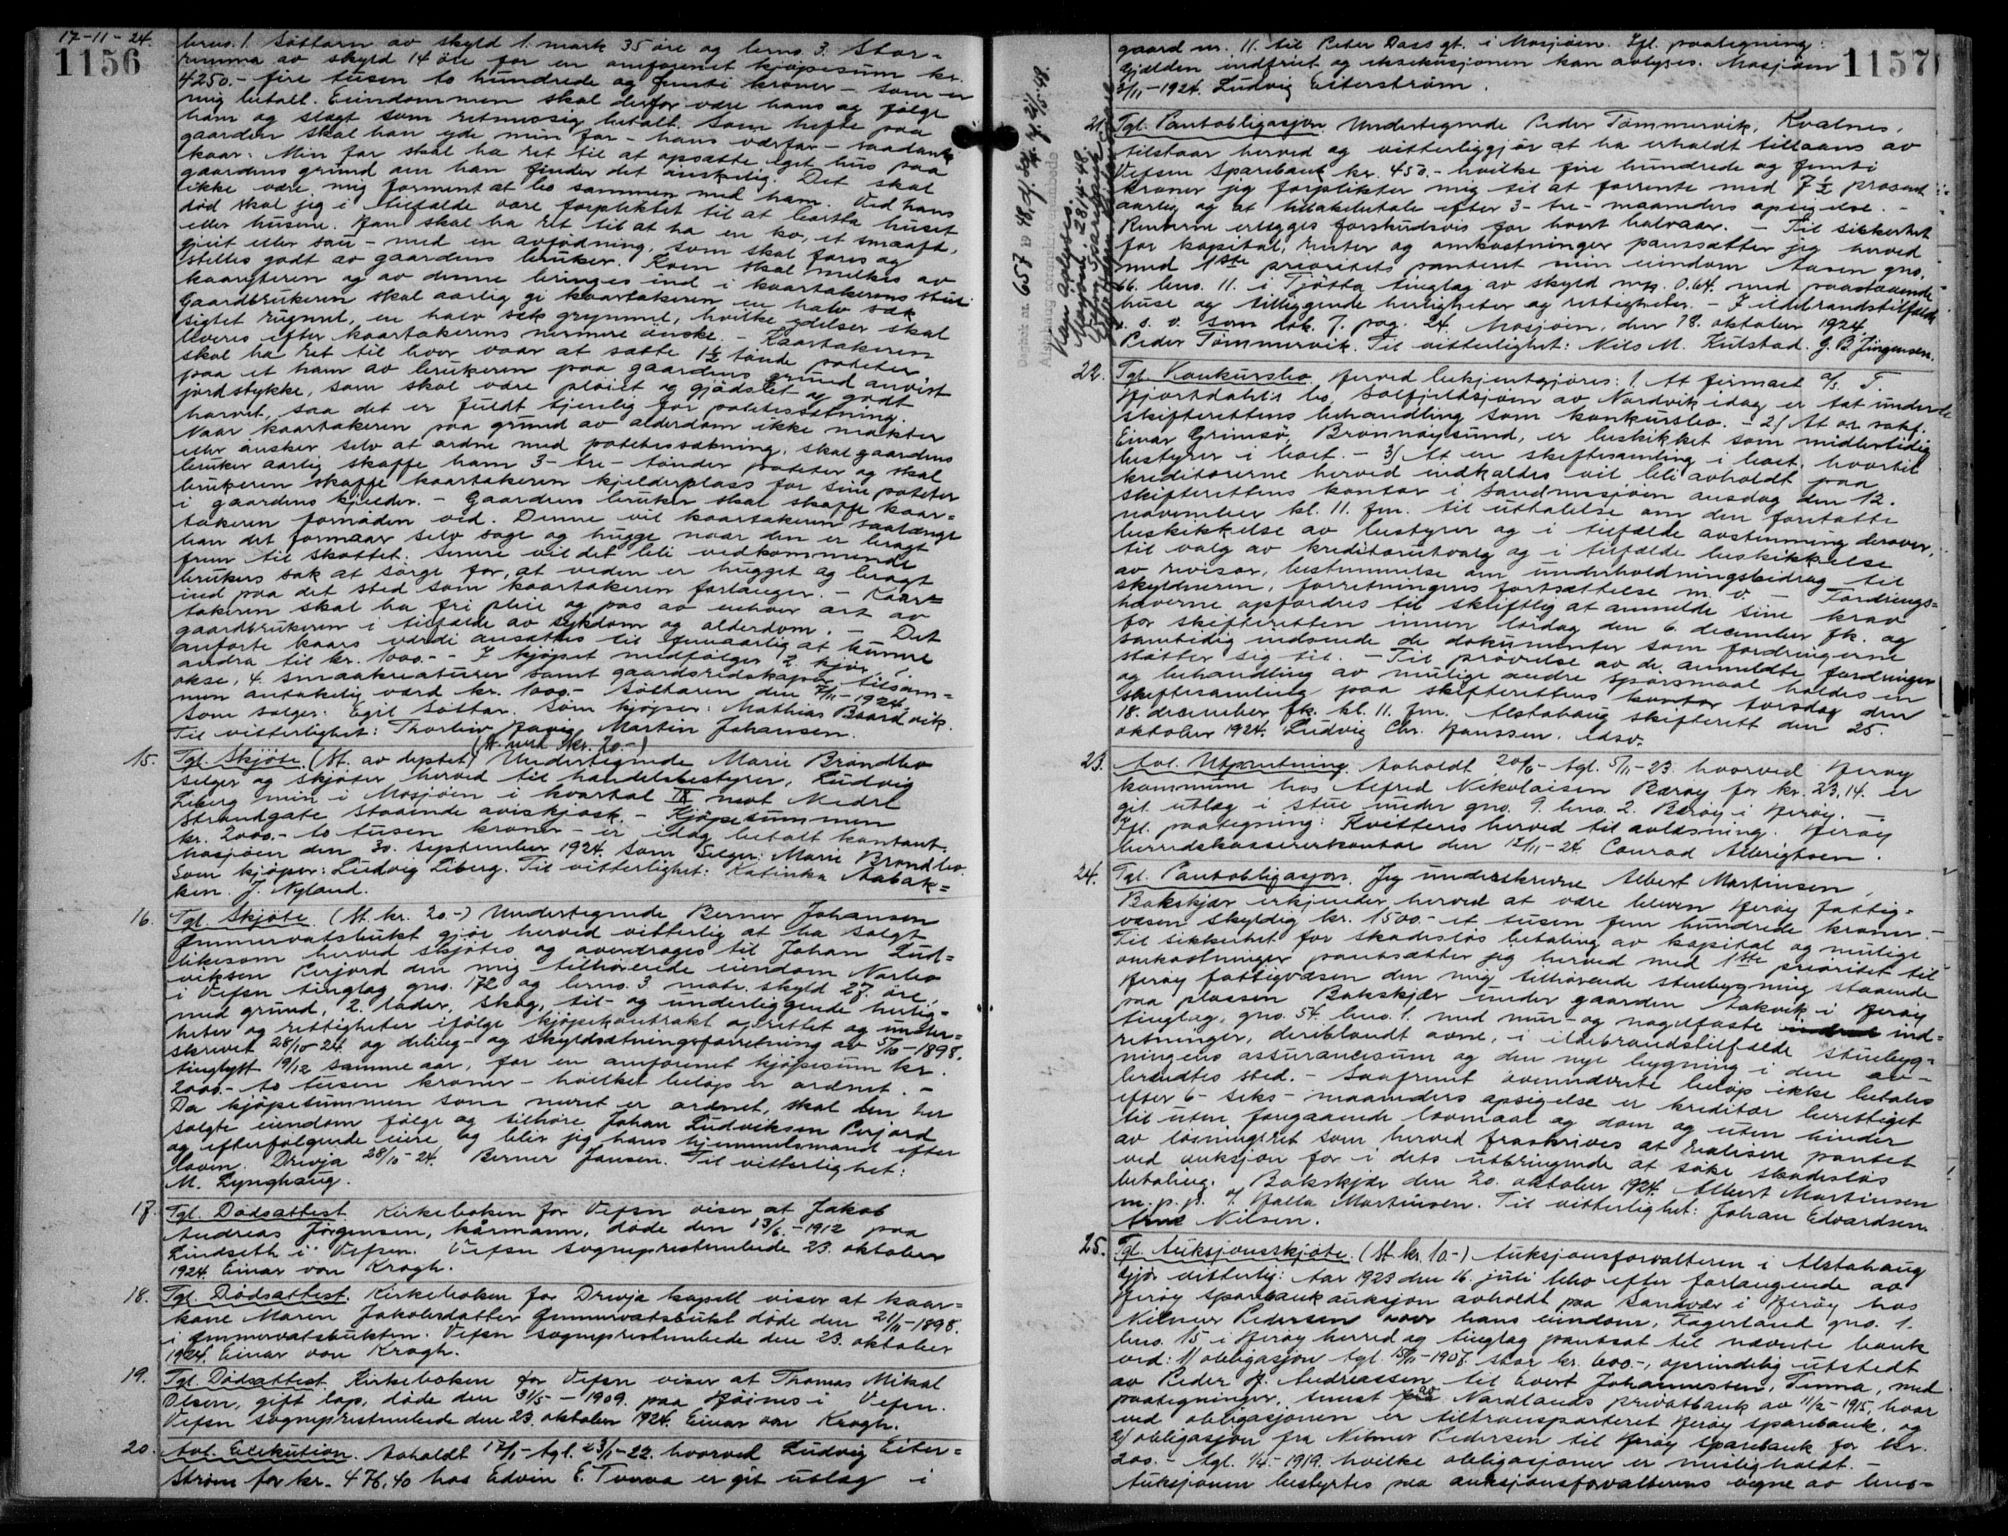 17-11-24.
1156
brno. 1. Søttarn av skyld 1. mark 35 öre og brno. 3. Stor-
rumma av skyld 14 öre for en omforenet kjøpesum kr.
4250.- fire tusen to hundrede og femti kroner - som er
mig betalt. Eiendommen skal derfor være hans og følge
ham og slegt som retmæssig betalt. Som hefte paa
gaarden skal han yde min far - hans værfar - saadant
kaar: Min far skal ha ret til at opsætte eget hus paa
gaardens grund om han finder det ønskelig. Det skal
ikke være mig forment at bo sammen med ham. Ved hans
død skal jeg i tilfælde være forpliktet til at borttа huset
eller husene. Han skal ha ret til at ha en ko, et smaafæ,
gjeit eller sau - med en avfødning, som skal fores og
stelles godt av gaardens bruker. Koen skal melkes av
kaaryteren og av denne bringes ind i kaartakerens stue.
Gaardbrukeren skal aarlig gi kaartakeren en halv sæk
sigtet rugmel, en halv sæk grynmel, hvilke ydelser skal
leveres efter kaartakerens nærmere ønske. - Kaartakeren
skal ha ret til hver vaar at sætte 1½ tønde poteter
paa et ham av brukeren paa gaardens grund anvist
jordstykke, som skal være pløiet og gjødslet og godt
harvet, saa det er fuldt tjenlig for potetessætning.
Naar kaartakeren paa grund av alderdom ikke makter
eller ønsker selv at ordne med potetessætning, skal gaardens
bruker aarlig skaffe ham 3 - tre - tønder poteter og skal
brukeren skaffe kaartakeren kjelderplass for sine poteter
i gaardens kjelder. - Gaardens bruker skal skaffe kaar-
takeren fornøden ved. Denne vil kaartakeren saalænge
han det formaar selv sage og hugge naar den er bragt
frem til skottet. Senere vil det bli vedkommende
brukers sak at sørge for, at veden er hugget og bragt
ind paa det sted som kaartakeren forlanger. - Kaar-
takeren skal ha fri pleie og pas av enhver art av
gaardbrukeren i tilfælde av sykdom og alderdom. - Det
anførte kaars værdi ansættes til femaarlig at kunne
andra til kr. 1000.- - I kjøpet medfølger 2 kjør, 1.
okse, 4. smaakreaturer samt gaardsredskaper, tilsam-
men antakelig værd kr. 1000.- Søttaren den 7/11-1924.
Som selger: Egil Søttar. Som kjøper: Mathias Baardvik.
Til vitterlighet: Thorleiv Martin Johansen.
15. Tgl. Skjöte (St. av deptet) (St. med kr. 20.-) Undertegnede Marie Brøndbo
selger og skjøter herved til handelsbestyrer, Ludvig
Ziberg min i Mosjøen i kvartal IX mot Nedre
Strandgate staaende aviskjosk. - Kjøpesummen
kr. 2000.- to tusen kroner - er idag betalt kontant.
Mosjøen den 30. september 1924. Som selger: Marie Brøndbo.
Som kjøper: Ludvig Ziberg. Til vitterlighet: Katinka Aabak-
ken. J. Nyland.
16. Tgl. Skjöte (St. kr. 20.-) Undertegnede Berner Johansen
Ømmervatsbukt gjør herved vitterlig at ha solgt
likesom herved skjøtes og overdrages til Johan Lud-
viksen Perjord den mig tilhørende eiendom Narbo
i Vefsn tinglag gno. 172 og brno. 3. matr. skyld 27. øre,
med grund, 2. lader, skog, til- og underliggende herlig-
heter og rettigheter ifølge kjøpekontrakt oprettet og under-
skrevet 28/10-24 og deling- og skyldsætningsforretning av 5/10-1898.
tinglyst 19/12 samme aar, for en omforenet kjøpesum kr.
2000.- to tusen kroner - hvilket beløp er ordnet. -
Da kjøpesummen som nævnt er ordnet, skal den her
solgte eiendom følge og tilhøre Johan Ludviksen Perjord
og efterfølgende eiere og blir jeg hans hjemmelsmand efter
loven. Drevja 28/10-24. Berner Jansen. Til vitterlighet:
M. Lynghaug.
17. Tgl. Dødsattest. Kirkeboken for Vefsn viser at Jakob
Andreas Jørgensen, kårmann, døde den 13/6-1912 paa
Lindseth i Vefsn. Vefsn sogneprestembede 23. oktober
1924. Einar von Krogh.
18. Tgl. Dødsattest. Kirkeboken for Drevja kapell viser at kaar-
kone Maren Jakobsdatter Ømmervatsbukt døde den 21/11-1898.
i Ømmervatsbukten. Vefsn sogneprestembede den 23. oktober
1924. Einar von Krogh.
19. Tgl. Dødsattest. Kirkeboken for Vefsn viser at Thomas Mikal
Olsen, gift lap, døde den 31/5-1909. paa Høines i Vefsn.
Vefsn sogneprestembede den 23. oktober 1924. Einar von Krogh.
20. Avl. Exekution. Avholdt 17/1-tgl. 23/1-22. hvorved Ludvig Eiter-
strøm for kr. 476,40 hos Edvin E. Tverraa er git utlæg i
1157
gaard nr. 11. til Peter Dass gt. i Mosjøen. Ifl. paategning:
Gjælden indfriet og eksekusjonen kan avlyses. Mosjøen
3/11-1924. Ludvig Eiterstrøm.
Kan avlyses.
Mosjøen, 28/4-48.
Vefsn Sparebank.
Dagbok nr. 657 19 48
21. Tgl. Pantobligasjon. Undertegnede Peder Tømmervik, Kvalnes,
tilstaar herved og vitterliggjør at ha erholdt tillaans av
Vefsn Sparebank kr. 450.- hvilke fire hundrede og femti
kroner jeg forplikter mig til at forrente med 7½ prosent
aarlig og at tilbakebetale efter 3-tre- maaneders opsigelse. -
Renterne erlægges forskudsvis for hvert halvaar. - Til sikkerhet
for kapital, renter og omkostninger pantsætter jeg herved
med 1ste prioritets panteret min eiendom Aasen gno.
66. brno. 11. i Tjøtta tinglag av skyld mk. 0.64. med paastaaende
huse og tilliggende herligheter og rettigheter. - I ildebrandstilfælde
o. s. v. som dok. 7. pag. 24. Mosjøen, den 18. oktober 1924.
Peder Tømmervik. Til vitterlighet: Nils M. Kulstad. G. B. Jürgensen.
22. Tgl. Konkursbo. Herved bekjentgjøres: 1. At firmaet a/s. F.
Hjortdahls bo, Solfjeldsjøen av Nordvik idag er tat under
skifterettens behandling som konkursbo. - 2/ At o. r. sakf.
Einar Grimsø, Brønnøysund, er beskikket som midlertidig
bestyrer i boet. - 3/ At en skiftesamling i boet, hvortil
kreditorerne herved indkaldes vil bli avholdt paa
skifterettens kontor i Sandnessjøen onsdag den 12.
november kl. 11. fm. til uttalelse om den foretatte
beskikkelse av bestyrer og i tilfælde avstemning derover,
til valg av kreditorutvalg og i tilfælde beskikkelse
av revisor, bestemmelse om underholdningsbidrag til
skyldneren, forretningens fortsættelse m. v. - Fordrings-
haverne opfordres til skriftlig at anmelde sine krav
for skifteretten innen lørdag den 6. december fk. og
samtidig indsende de dokumenter som fordringerne
støtter sig til. - Til prøvelse av de anmeldte fordringer
og behandling av mulige andre spørsmaal holdes en
skiftesamling paa skifterettens kontor torsdag den
18. december fk. kl. 11. fm. Alstahaug skifterett den 25.
oktober 1924. Ludvig Chr. Hanssen. edsv.
23. Avl. Utpantning. Avholdt 20/6-tgl. 5/11-23. hvorved Herøy
kommune hos Alfred Nikolaisen Bærøy for kr. 23,14. er
git utlæg i stue under gno. 9. brno. 2. Bærøy i Herøy. -
Ifl. paategning: Kvitteres herved til avlæsning. Herøy
herredskassererkontor den 12/11-24. Conrad Albrigtsen.
24. Tgl. Pantobligasjon. Jeg underskrevne Albert Martinsen,
Bakskjær erkjender herved at være bleven Herøy fattig-
væsen skyldig kr. 1500.- et tusen fem hundrede kroner. -
Til sikkerhet for skadesløs betaling av kapital og mulige
omkostninger pantsætter jeg herved med 1ste prioritet til
Herøy fattigvæsen den mig tilhørende stuebygning staaende
paa plassen Bakskjær under gaarden Aakvik i Herøy
tinglag, gno. 54. brno. 1. med mur- og nagelfaste ind-
retninger, deriblandt ovne, i ildebrandstilfælde stuebyg-
ningens assurancesum og den nye bygning i den av-
brændtes sted. - Saafremt ovennævnte beløp ikke betales
efter 6 - seks - maaneders opsigelse er kreditor berettiget
til uten foregaaende lovmaal og dom og uten hinder
av løsningsret som herved fraskrives at realisere pantet
ved auksjon for i dets utbringende at søke skadesløs
betaling. Bakskjær den 20. oktober 1924. Albert Martinsen
m. p. p. v/ Halla Martinsen. Til vitterlighet: Johan Edvardsen
Arne Nilsen.
25. Tgl. Auksjonsskjöte. (St. kr. 10.-) Auksjonsforvalteren i Alstahaug
Gjör vitterlig: Aar 1923 den 16. juli blev efter forlangende av
Herøy sparebank auksjon avholdt paa Sandvær i Herøy hos
Hilmer Pedersen over hans eiendom, Fagerland gno. 1.
brno. 15 i Herøy herred og tinglag pantsat til nævnte bank
ved: 1/ obligasjon tgl. 15/11-1907. stor kr. 600.-, oprindelig utstedt
av Peder J. Andreassen til Evert Johannessen, Tenna, med
paategninger, senest av Nordlands privatbank av 11/2-1915, hvor
ved obligasjonen er tiltransporteret Herøy sparebank, og
2/ obligasjon fra Hilmer Pedersen til Herøy sparebank for kr.
200.- tgl. 1/4.-1919. hvilke obligasjoner er misligholdt. -
Auksjonen bestyrtes paa auksjonsforvalterens vegne av lens-